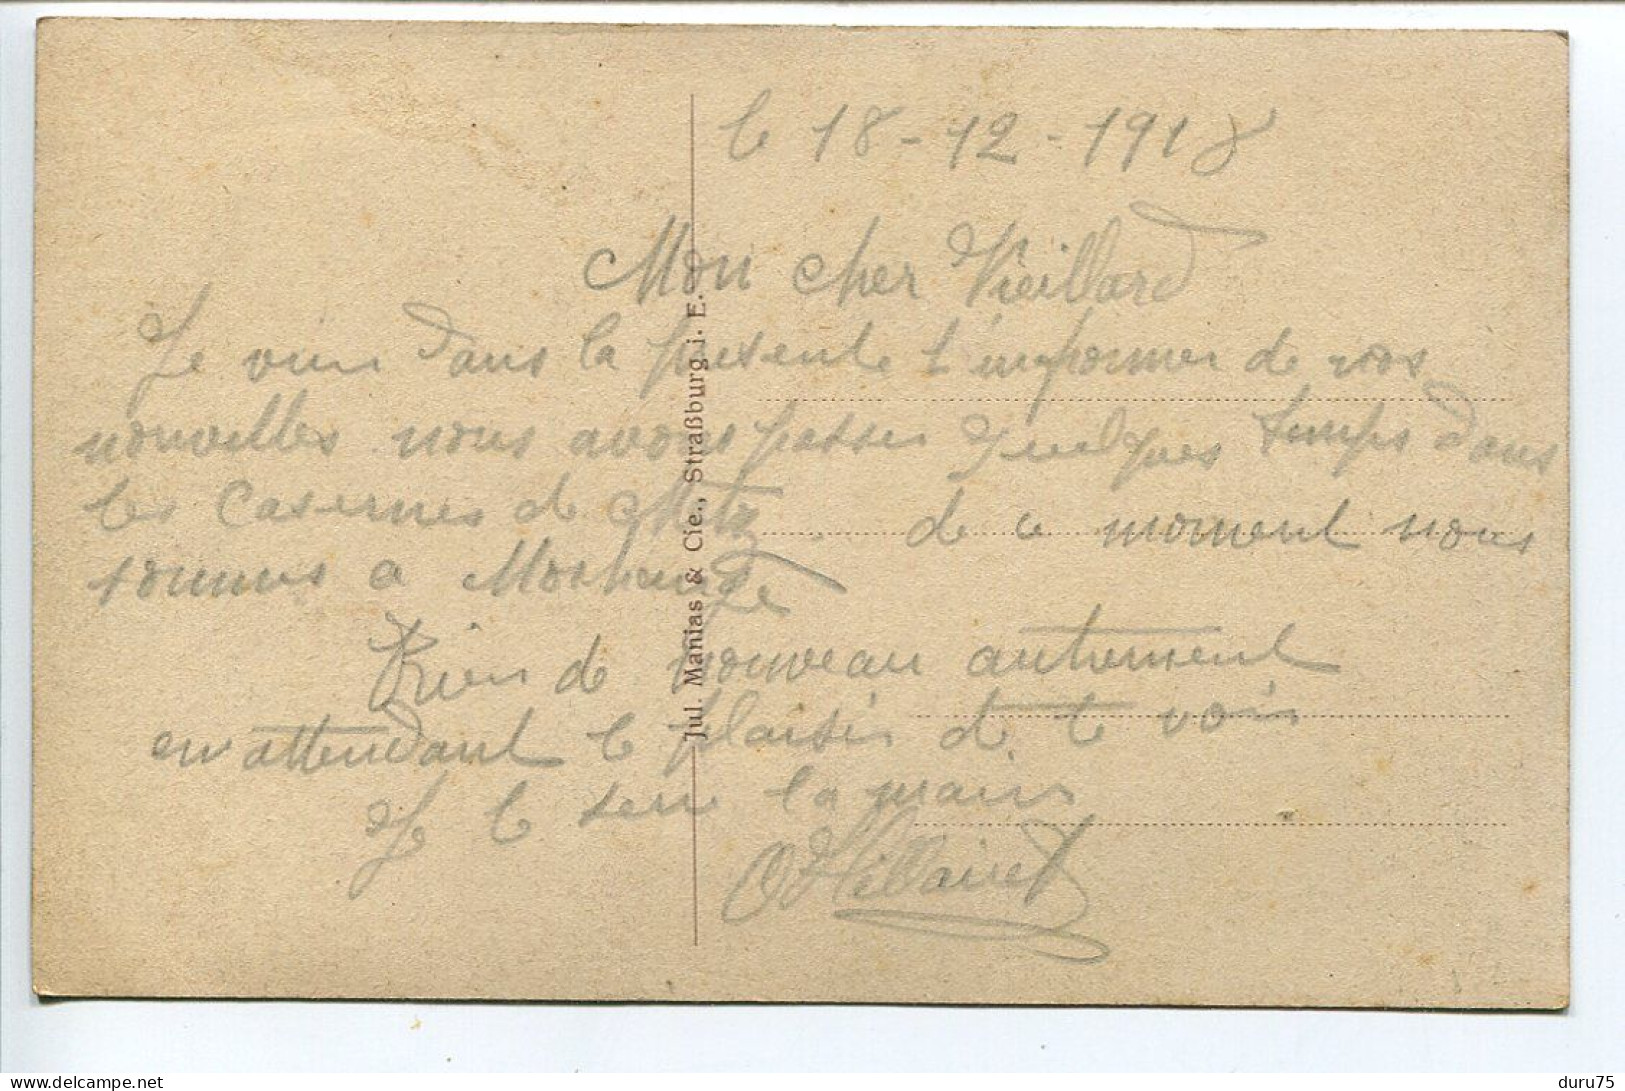 le 18-12-1918
Mon cher Vieillard
Je vien dans la presente t'informer de nos
nouvelles nous avons passer quelques temps dans
les Casernes de Metz de ce moment nous
sommes a Morhange
Rien de nouveau autrement
en attendant le plaisir de te voir
Je te serre la main
O Hillairet
Jul. Manias & Cie., Straßburg i. E.
delcampe.net
duru75